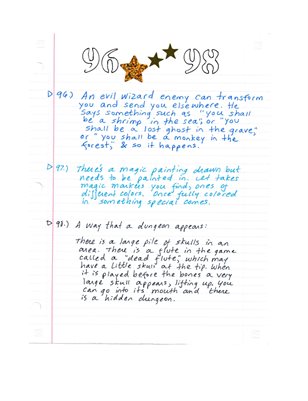 96 98
▷ 96.) An evil wizard enemy can transform
you and send you elsewhere. He
says something such as "you shall
be a shrimp in the sea," or "you
shall be a lost ghost in the grave,"
or "you shall be a monkey in the
forest," & so it happens.
▷ 97.) There's a magic painting drawn but
needs to be painted in. Let takes
magic markers you find, ones of
different colors. Once fully colored
in something special comes.
▷ 98.) A way that a dungeon appears:
There is a large pile of skulls in an
area. There is a flute in the game
called a "dead flute," which may
have a little skull at the tip. When
it is played before the bones a very
large skull appears, lifting up. You
can go into its mouth and there
is a hidden dungeon.